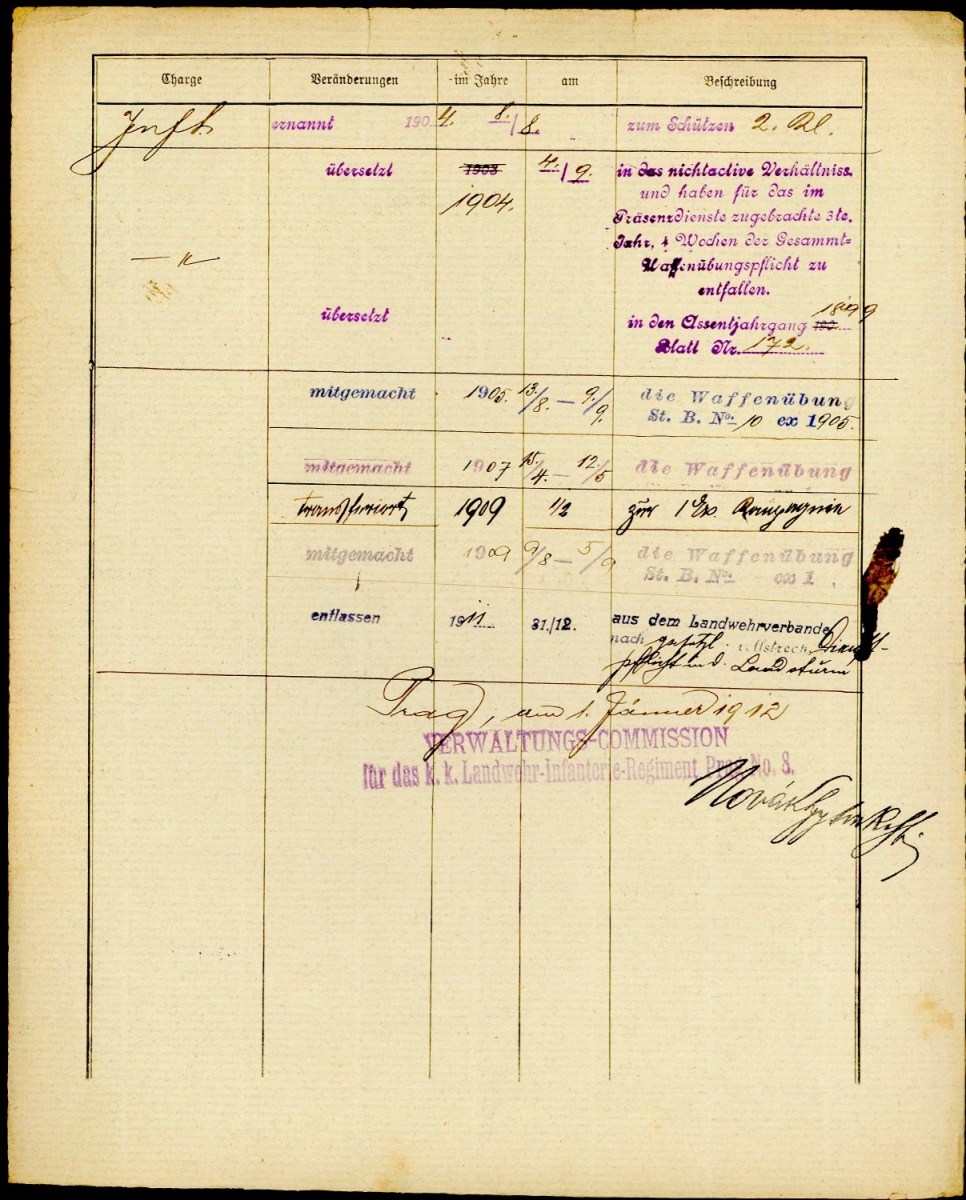 Charge Veränderungen im Jahre am Beschreibung
Inft. ernannt 1904. 8./8. zum Schützen 2. Kl.
übersetzt 1903 4./9. in das nichtactive Verhältniss.
1904. und haben für das im
Präsenzdienste zugebrachte 3te.
Jahr, 4 Wochen der Gesammt=
— " — Waffenübungspflicht zu
entfallen.
übersetzt in den Assentjahrgang 190 1899
Blatt Nr. 172.
mitgemacht 1905. 13./8. — 9./9. die Waffenübung
St. B. No. 10 ex 1905.
mitgemacht 1907 15./4. — 12./5 die Waffenübung
transferiert 1909 1/2 zur 1 Ers. Kompagnie
mitgemacht 1909 9/8 — 5/9 die Waffenübung
St. B. No. ex 1
entlassen 1911 31./12. aus dem Landwehrverbande
nach gesetzl. vollstreckt. Dienst-
pflicht in d. Landsturm
Prag, am 1. Jänner 1912
VERWALTUNGS-COMMISSION
für das k. k. Landwehr-Infanterie-Regiment Prag No. 8.
Novák